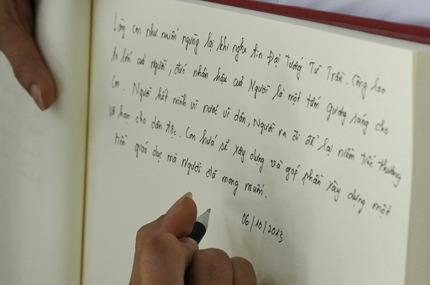 Lòng con như muốn ngừng lại khi nghe tin Đại Tướng Từ Trần. Công lao
to lớn của người, đức nhân hậu của Người là một tấm gương sáng cho
con. Người hết mình vì nước vì dân, Người ra đi để lại niềm tiếc thương
vô hạn cho dân tộc. Con hứa sẽ xây dựng và góp phần xây dựng một
nền giáo dục mà Người đã mong muốn.
06/10/2013